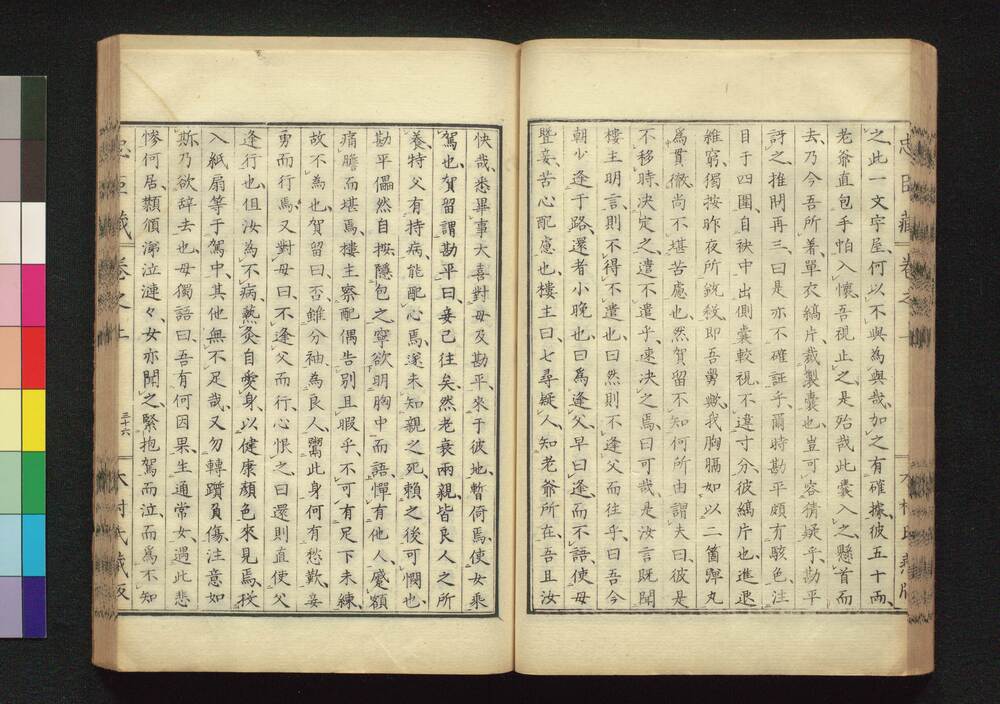 之此一文字屋何以不與為與哉加之有確據彼五十両
老爺直包手怕入懷吾視止之是殆哉此囊入之懸首而
去乃今吾所着單衣縞片裁製囊也豈可容猜疑乎勘平
訝之推問再三曰是亦不確証乎爾時勘平頗有駭色注
目于四圍自袂中出側囊較視不違寸分彼縞片也進退
維窮獨按昨夜所銃殺即吾舅歟我胸膈如以二箇彈丸
為貫徹尚不堪苦慮也然賀留不知何所由謂夫曰彼是
不移時決定之遣不遣乎速決之焉曰可哉是汝言既聞
樓主明言則不得不遣也曰然則不逢父而往乎曰吾今
朝少逢于路還者小晩也曰為逢父早曰逢而不語使母
曁妾苦心配慮也樓主曰七尋疑人知老爺所在吾且汝
忠臣藏 卷之上 木村氏藏版
快哉悉畢事大喜對母及勘平來于彼地暫倚焉使女乘
駕也賀留謂勘平曰妾已往矣然老衰兩親皆良人之所
養特父有持病能配心焉遂未知親之死賴之後可憫也
勘平儡然自按隱包之寧欲明胸中而語憚有他人蹙額
痛膽而堪焉樓主察配偶告別且暇乎不可有足下未練
故不為也賀留曰否雖分袖為良人鬻此身何有愁歎妾
勇而行焉又對母曰不逢父而行心恨之曰還則直使父
逢行也但汝為不病熱灸自愛身以健康顏色來見焉扠
入紙扇等于駕中其他無不足哉又勿轉躓負傷注意如
斯乃欲辞去也母獨語曰吾有何因果生通常女遇此悲
慘何居纇頒涕泣漣々女亦聞之緊抱駕而泣而為不知
忠臣藏 卷之上 三十六 木村氏藏版